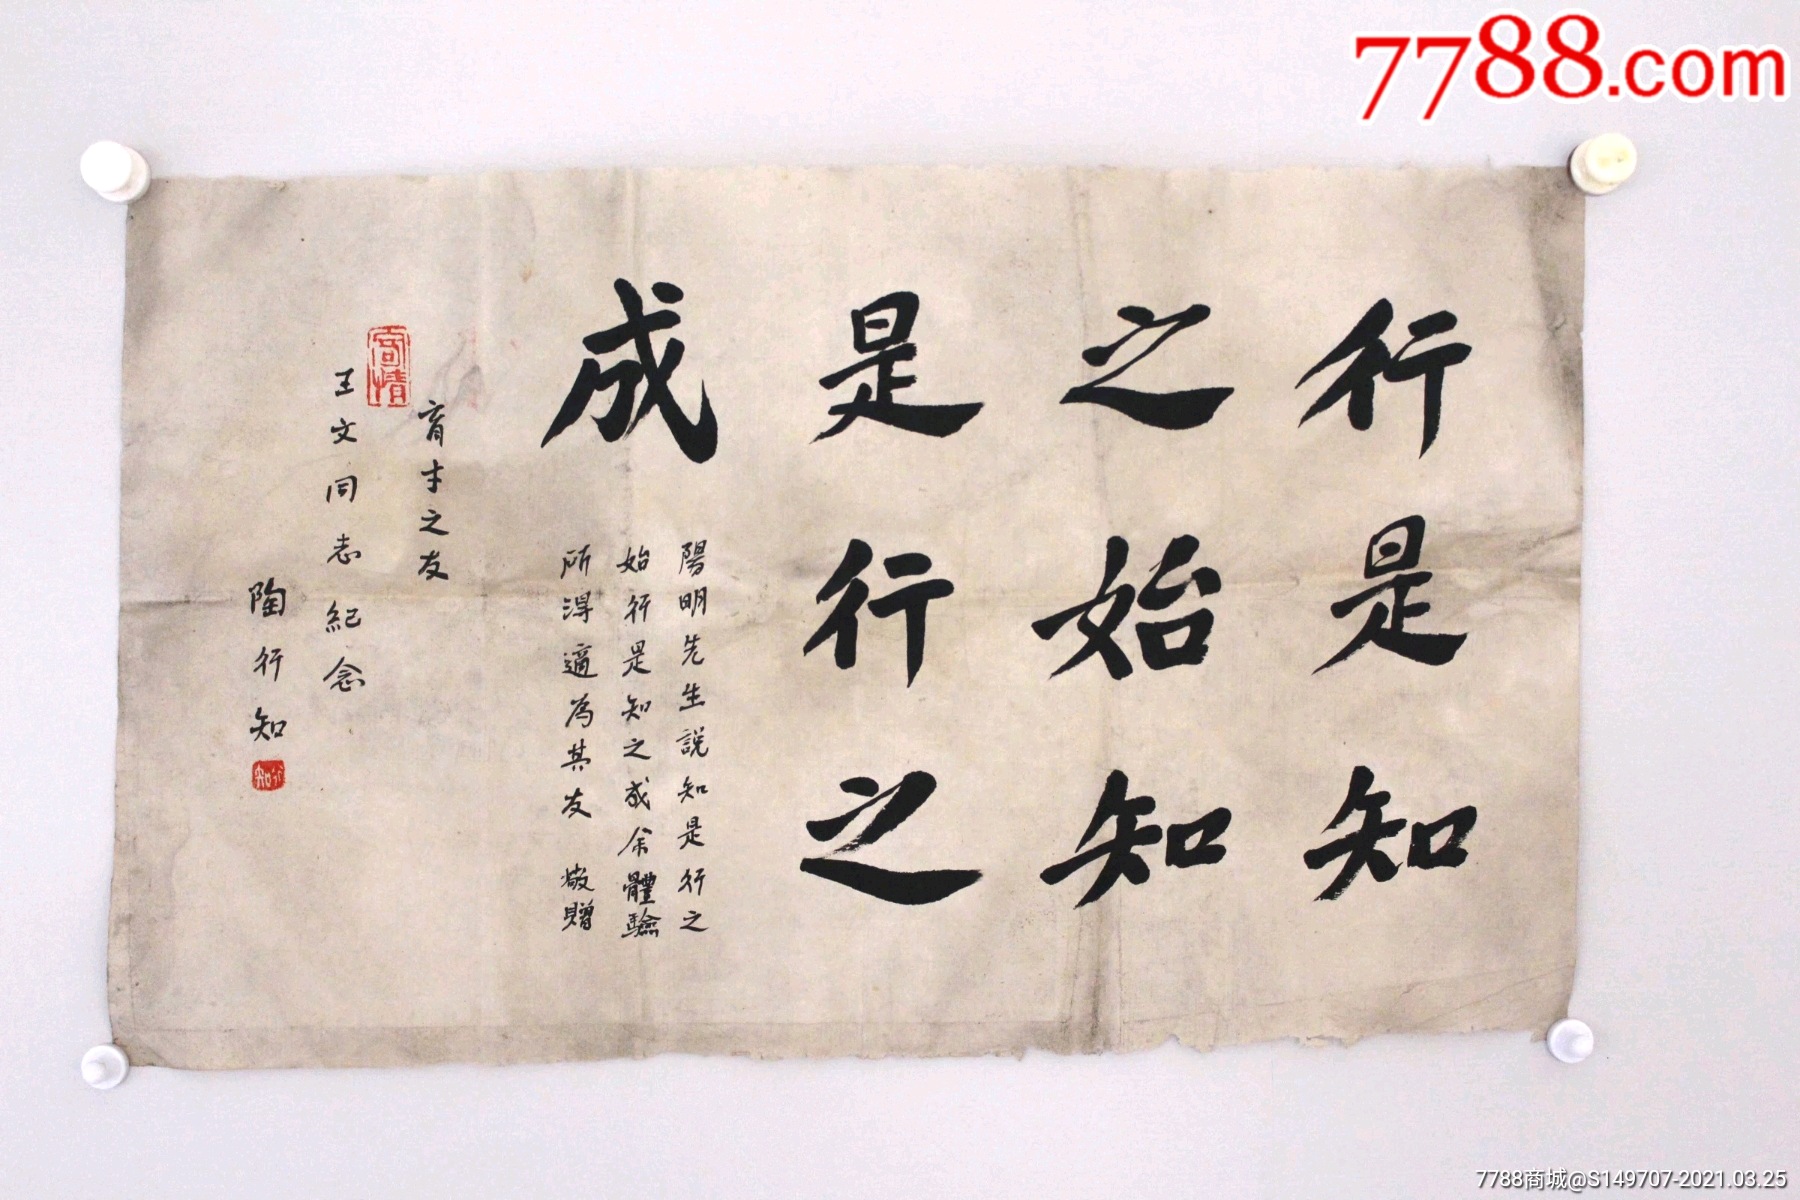 行是知
之始知
是行之
成
陽明先生說知是行之
始行是知之成余體驗
所得適為其反 敬贈
育才之友
王文同志紀念
陶行知
行知
寄情
7788.com
7788商城@S149707-2021.03.25